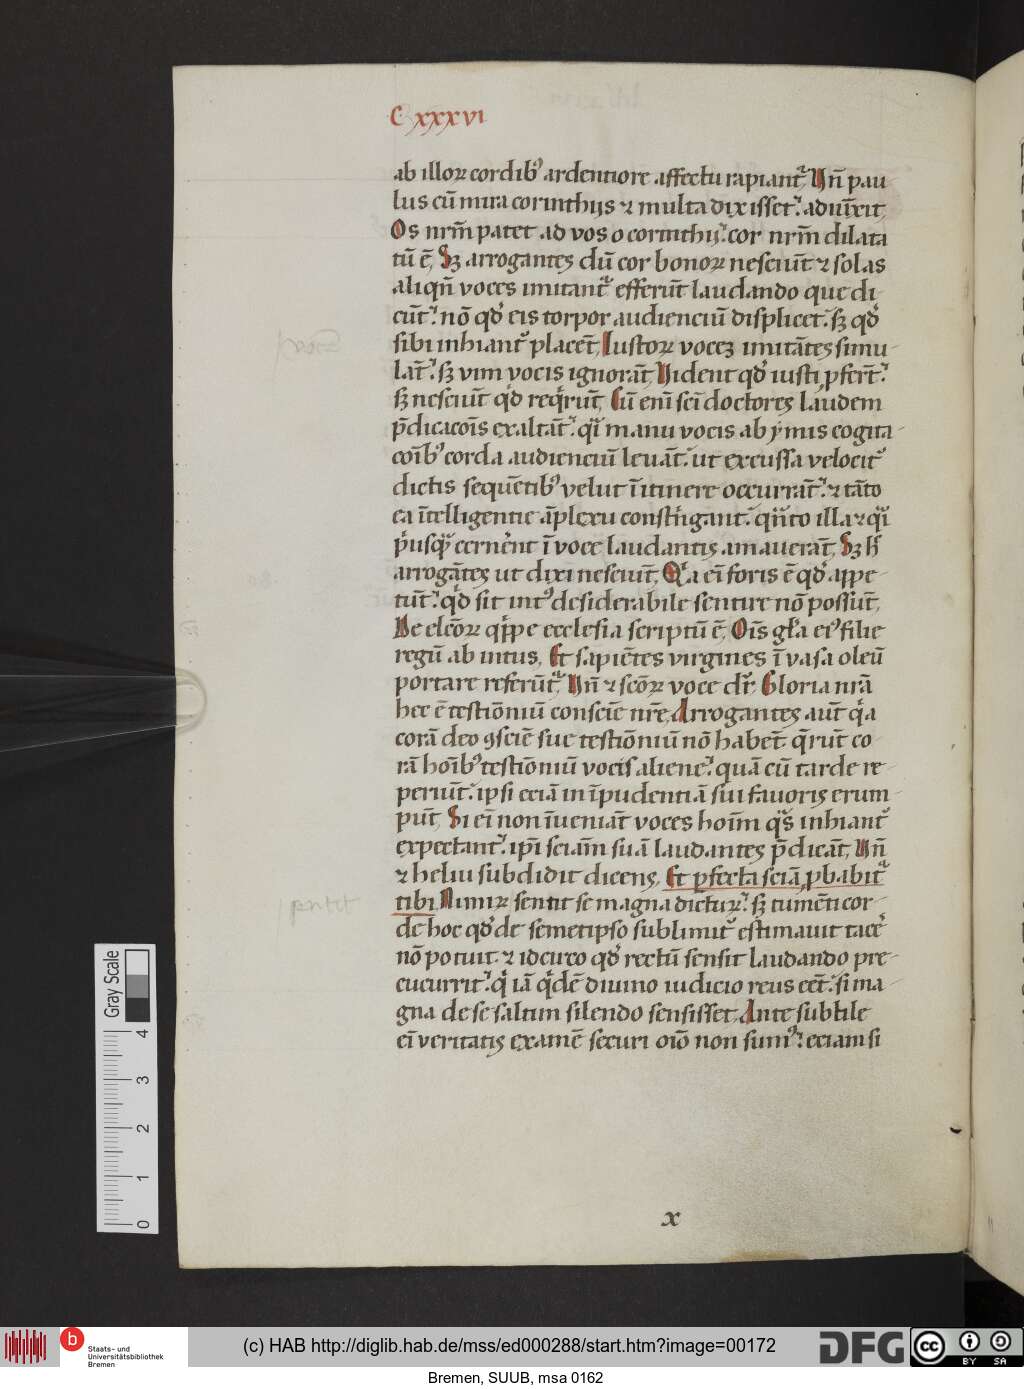 C xxxvi
ab illoꝝ cordibꝰ ardentiore affectu rapiantᷣ. Vn̄ pau
lus cū mira corinthijs ⁊ multa dixisset. aduīxit
Os nrm̄ patet ad vos o corinthij. cor nrm̄ dilata
tū ē. Sꝫ arrogantes dū cor bonoꝝ nesciūt ⁊ solas
aliqn̄ voces imitantᷣ efferūt laudando que di
cūt. nō qđ eis torpor audienciū displicet. sꝫ qđ
sibi inhiantᷣ placēt. Iustoꝝ voceꝫ imitātes simu-
lāt. sꝫ vim vocis ignorāt. Vident qđ iusti ꝓferūt.
sꝫ nesciūt qͥd reqͥrūt. Cū enī sc̄i doctores laudem
p̄dicacōis exaltāt. qͣsi manu vocis ab ymis cogita-
cōibꝰ corda audienciū leuāt. ut excussa velocitᷣ
dictis sequētibꝰ velut ī itinere occurrāt. ⁊ tāto
ea ītelligentie āplexu constͥngant. qn̄to illa ⁊ qͣsi
pͥusqͣꝫ cernēnt ī voce laudantis amauerāt. Sꝫ hͥ
arrogātes ut dixi nesciūt. Qͥa eī foris ē qđ appe-
tūt. qͥd sit intꝰ desiderabile sentire nō possūt.
De elcōꝝ qͥppe ecclesia scriptū ē. Oīs gl̄a eiꝰ filie
regū ab intus. Et sapiētes virgines ī vasa oleū
portare referūtᷣ. Vn̄ ⁊ sc̄oꝝ voce dr̄. Gloria nrā
hec ē testiōniū consciē nrē. Arrogantes aūt qͥa
corā deo ꝯsciē sue testiōniū nō habēt. q̄rūt co-
rā hoīb' testiōniū vocis aliene. quā cū tarde re-
periūt. ipsi eciā in īpudentiā sui fauoris erum-
pūt. Si eī non īueniāt voces hoīm qͣs inhiantᷣ
expectantᷣ. ip̄i sciam̄ suā laudantes p̄dicāt. Vn̄
⁊ heliu subdidit dicens. Et ꝑfecta sciā ꝓbabitᷣ
tibi. Nimiꝝ sentit se magna dicturꝰ. sꝫ tumēti cor-
de hoc qđ de semetipso sublimitᷣ estimauit tacē
nō potuit. ⁊ idcirco qđ rectū sensit laudando pre-
cucurrit. qͥ iā qͥdē diuino iudicio reus eēt. si ma-
gna de se saltim silendo sensisset. Ante subtile
eī veritatis examē securi oīo non sumꝰ. eciam si
x
Gray Scale
4
3
2
1
0
b
Staats- und
Universitätsbibliothek
Bremen
(c) HAB http://diglib.hab.de/mss/ed000288/start.htm?image=00172
DFG
cc
BY SA
Bremen, SUUB, msa 0162